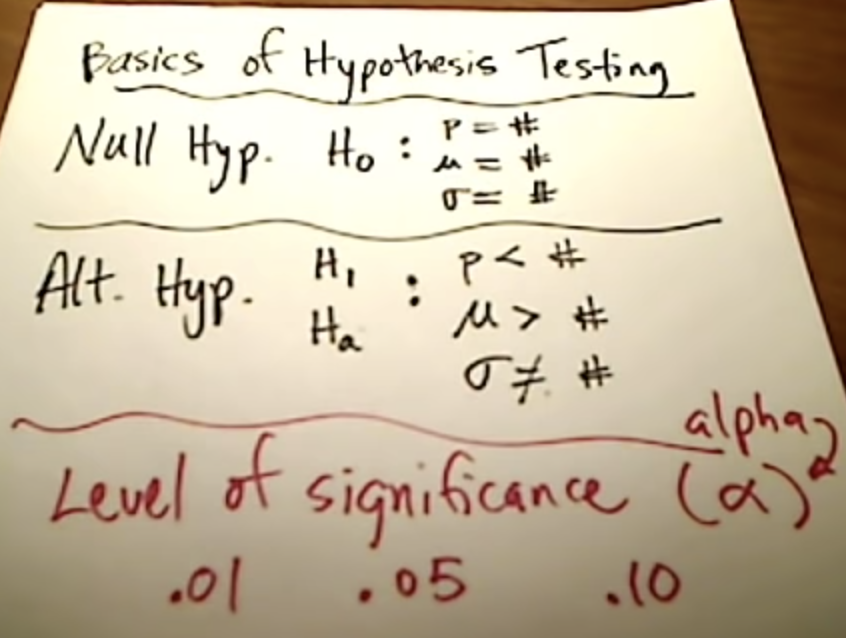 Basics of Hypothesis Testing
Null Hyp. H₀ : p = #
μ = #
σ = #
Alt. Hyp. H₁ : p < #
Hₐ μ > #
σ ≠ #
alpha
Level of significance (α)
.01 .05 .10